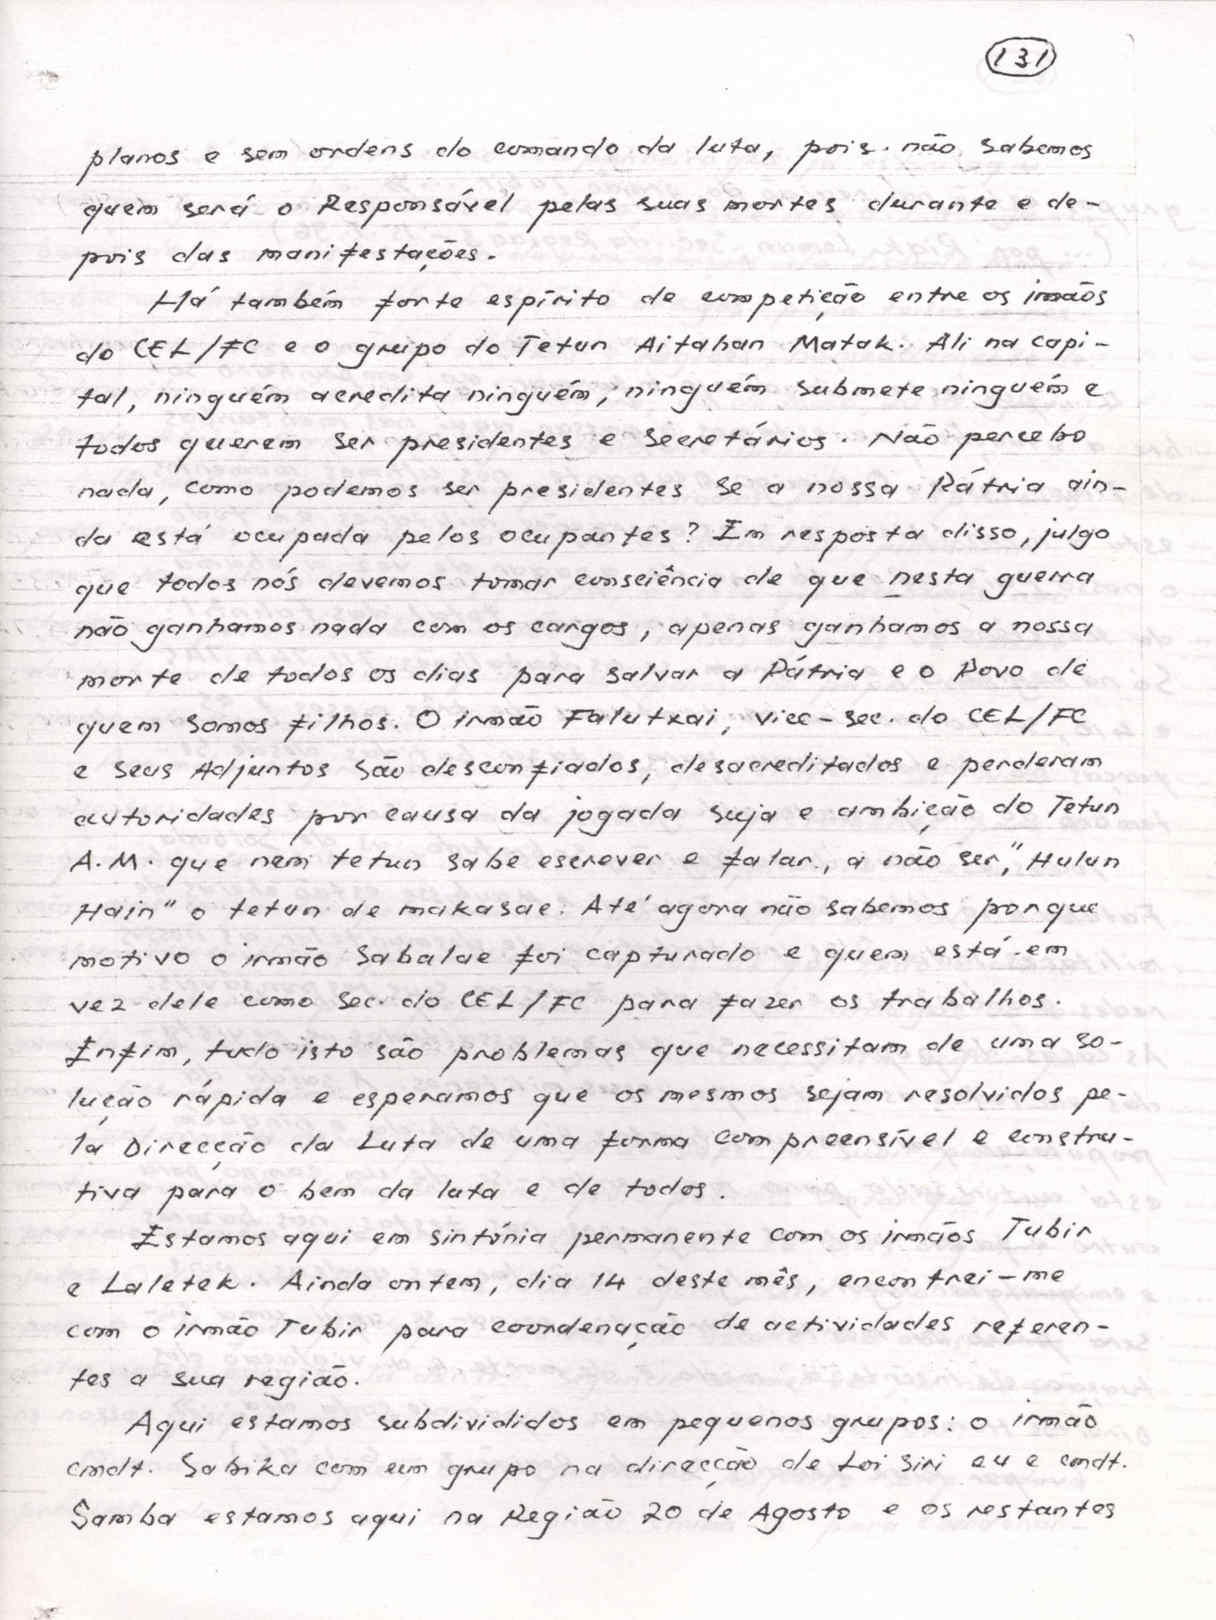 131
planos e sem ordens do comando da luta, pois não sabemos
quem será o Responsável pelas suas mortes durante e de-
pois das manifestações.
Há também forte espírito de competição entre os irmãos
do CEL/FC e o grupo do Tetun Aitahan Matak. Ali na capi-
tal, ninguém acredita ninguém, ninguém submete ninguém e
todos querem ser presidentes e Secretários. Não percebo
nada, como podemos ser presidentes se a nossa Pátria ain-
da está ocupada pelos ocupantes? Em resposta disso, julgo
que todos nós devemos tomar consciência de que nesta guerra
não ganhamos nada com os cargos, apenas ganhamos a nossa
morte de todos os dias para salvar a Pátria e o Povo de
quem somos filhos. O irmão Falutxai, vice-sec. do CEL/FC
e seus Adjuntos são desconfiados, desacreditados e perderam
autoridades por causa da jogada suja e ambição do Tetun
A.M. que nem tetun sabe escrever e falar, a não ser, "Hulun
Hain" o tetun de makasae. Até agora não sabemos porque
motivo o irmão Sabalae foi capturado e quem está em
vez dele como sec. do CEL/FC para fazer os trabalhos.
Enfim, tudo isto são problemas que necessitam de uma so-
lução rápida e esperamos que os mesmos sejam resolvidos pe-
la Direcção da Luta de uma forma compreensível e constru-
tiva para o bem da luta e de todos.
Estamos aqui em sintónia permanente com os irmãos Tubir
e Laletek. Ainda ontem, dia 14 deste mês, encontrei-me
com o irmão Tubir para coordenação de actividades referen-
tes a sua região.
Aqui estamos subdivididos em pequenos grupos: o irmão
cmdt. Sabika com um grupo na direcção de Loi Siri eu e cmdt.
Samba estamos aqui na Região 20 de Agosto e os restantes